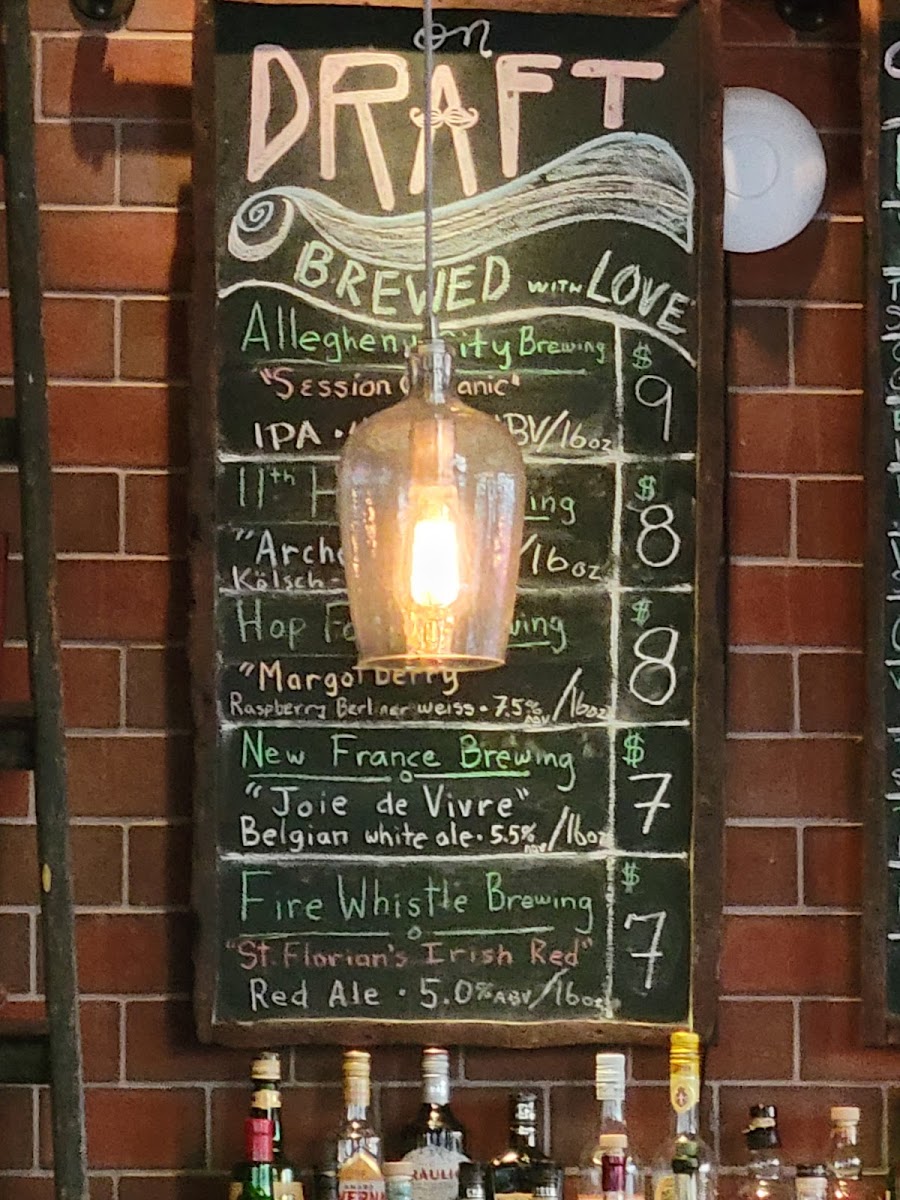 on
DRAFT
BREWED WITH LOVE
Allegheny City Brewing $
"Session anic" 9
IPA · ABV/16oz
11th ing $
"Arche /16oz 8
Kölsch -
Hop wing $
"Margo Berry" 8
Raspberry Berliner weiss · 7.5% ABV/16oz
New France Brewing $
"Joie de Vivre" 7
Belgian white ale · 5.5% ABV/16oz
Fire Whistle Brewing $
"St. Florian's Irish Red" 7
Red Ale · 5.0% ABV/16oz